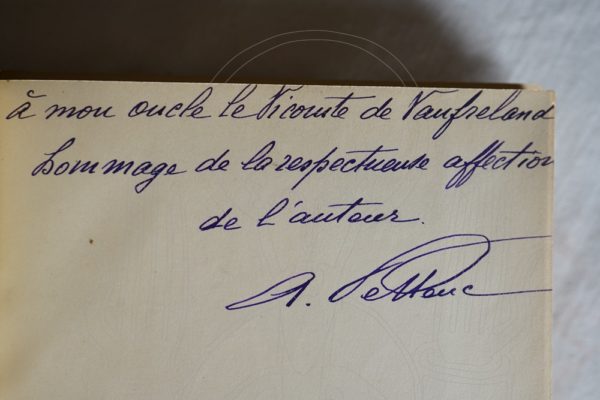 à mon oncle le Vicomte de Vaufreland
hommage de la respectueuse affection
de l'auteur.
A.